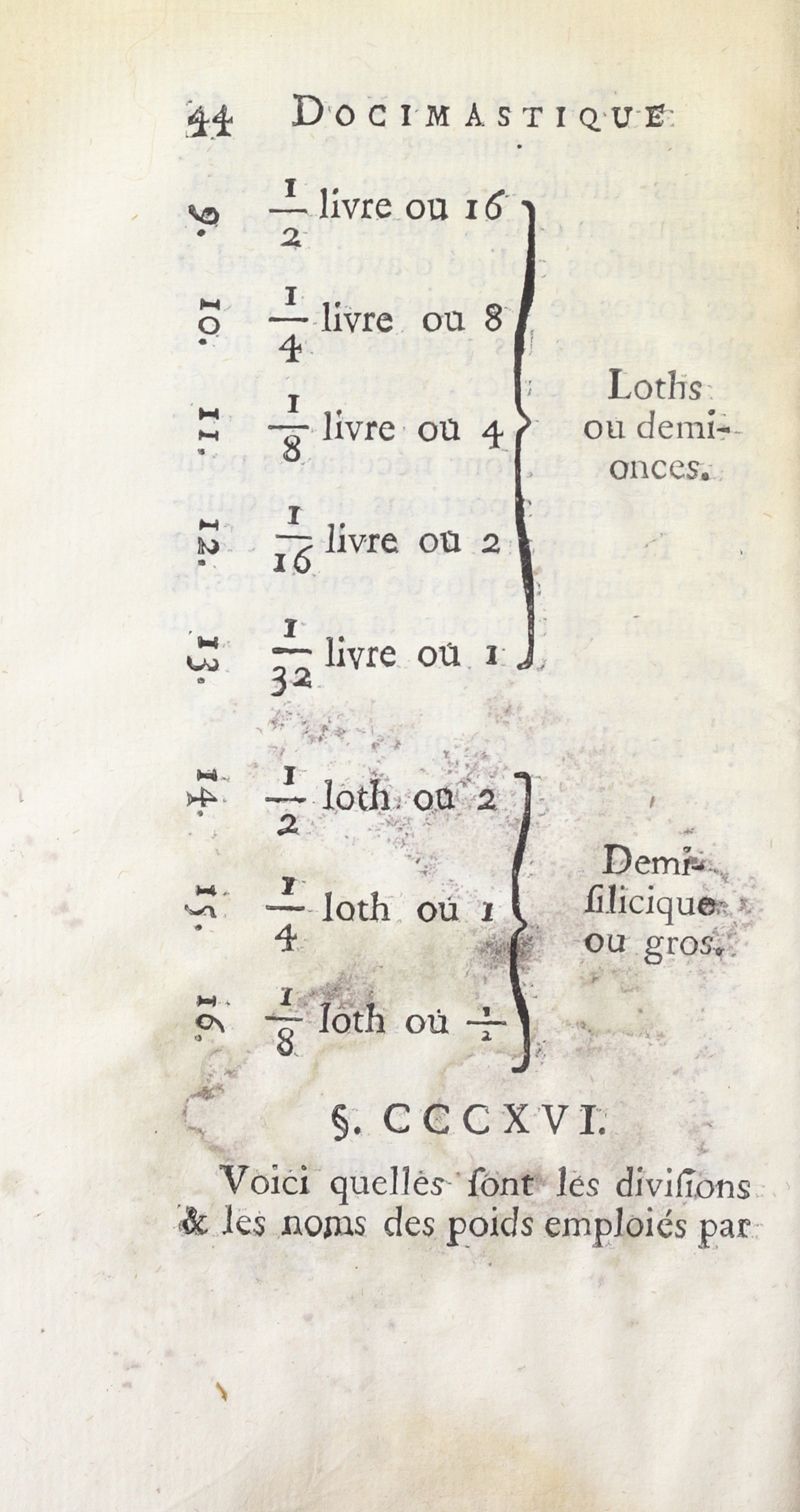 44 DOCIMASTIQUE
9. 1/2 livre ou 16
10. 1/4 livre ou 8
11. 1/8 livre ou 4
12. 1/16 livre ou 2
13. 1/32 livre ou 1
Loths
ou demi-
onces.
14. 1/2 loth ou 2
15. 1/4 loth ou 1
16. 1/8 loth ou 1/2
Demi-
ſilicique
ou gros.
§. CCCXVI.
Voici quelles ſont les diviſions
& les noms des poids emploiés par